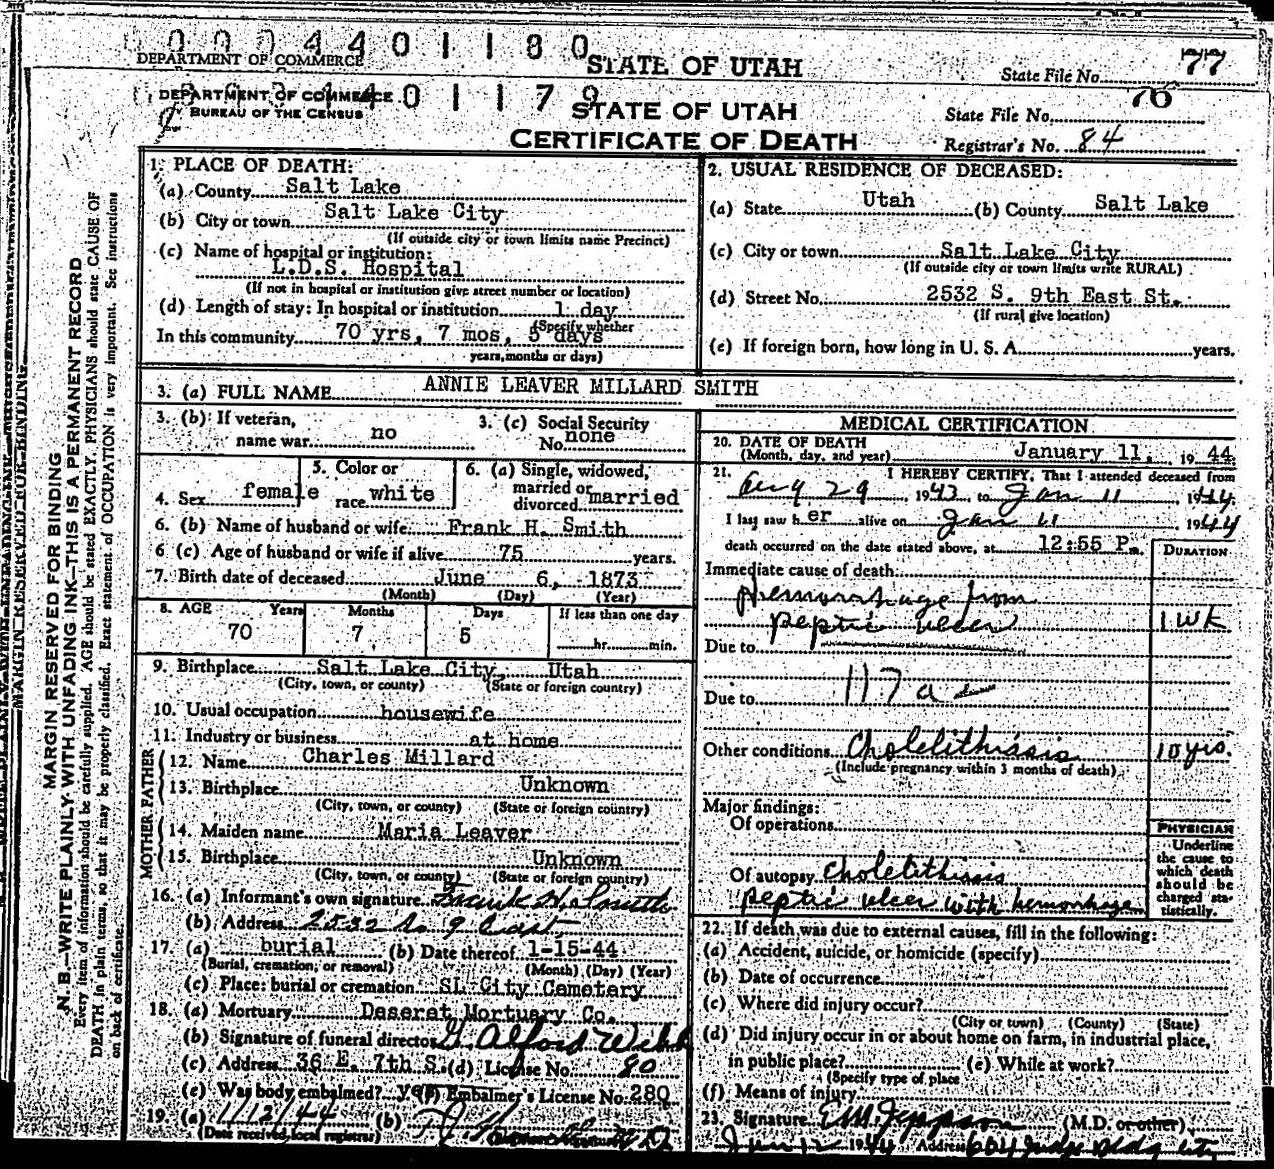 0004401180
DEPARTMENT OF COMMERCE
STATE OF UTAH
State File No. 77
DEPARTMENT OF COMMERCE
01179
BUREAU OF THE CENSUS
STATE OF UTAH
CERTIFICATE OF DEATH
State File No. 76
Registrar's No. 84
MARGIN RESERVED FOR BINDING
N. B.—WRITE PLAINLY WITH UNFADING INK—THIS IS A PERMANENT RECORD
Every item of information should be carefully supplied. AGE should be stated EXACTLY. PHYSICIANS should state CAUSE OF
DEATH in plain terms, so that it may be properly classified. Exact statement of OCCUPATION is very important. See instructions
on back of certificate.
1. PLACE OF DEATH:
(a) County Salt Lake
(b) City or town Salt Lake City
(If outside city or town limits name Precinct)
(c) Name of hospital or institution:
L.D.S. Hospital
(If not in hospital or institution give street number or location)
(d) Length of stay: In hospital or institution 1 day
(Specify whether
In this community 70 yrs, 7 mos, 5 days
years, months or days)
2. USUAL RESIDENCE OF DECEASED:
(a) State Utah (b) County Salt Lake
(c) City or town Salt Lake City
(If outside city or town limits write RURAL)
(d) Street No. 2532 S. 9th East St.
(If rural give location)
(e) If foreign born, how long in U. S. A. years.
3. (a) FULL NAME ANNIE LEAVER MILLARD SMITH
3. (b) If veteran,
name war no
3. (c) Social Security
No. none
4. Sex female
5. Color or
race white
6. (a) Single, widowed,
married or
divorced married
6. (b) Name of husband or wife Frank H. Smith
6 (c) Age of husband or wife if alive 75 years.
7. Birth date of deceased June 6, 1873
(Month) (Day) (Year)
8. AGE Years Months Days If less than one day
70 7 5 hr. min.
9. Birthplace Salt Lake City, Utah
(City, town, or county) (State or foreign country)
10. Usual occupation housewife
11. Industry or business at home
FATHER
12. Name Charles Millard
13. Birthplace Unknown
(City, town, or county) (State or foreign country)
MOTHER
14. Maiden name Maria Leaver
15. Birthplace Unknown
(City, town, or county) (State or foreign country)
16. (a) Informant's own signature Frank H. Smith
(b) Address 2532 So 9 East
17. (a) burial (b) Date thereof 1-15-44
(Burial, cremation, or removal) (Month) (Day) (Year)
(c) Place: burial or cremation SL City Cemetery
18. (a) Mortuary Deseret Mortuary Co.
(b) Signature of funeral director G. Alford Webb
(c) Address 36 E. 7th S. (d) License No. 80
(e) Was body embalmed? yes (f) Embalmer's License No. 280
19. (a) 1/12/44 (b)
(Date received local registrar)
MEDICAL CERTIFICATION
20. DATE OF DEATH
(Month, day, and year) January 11, 1944
21. I HEREBY CERTIFY, That I attended deceased from
Aug 29, 1943, to Jan 11, 1944
I last saw her alive on Jan 11, 1944
death occurred on the date stated above, at 12:55 P m.
DURATION
Immediate cause of death:
Hemorrhage from
peptic ulcer 1 wk
Due to
117a2
Due to
Other conditions Cholelithiasis 10 yrs.
(Include pregnancy within 3 months of death)
Major findings:
Of operations
Of autopsy Cholelithiasis
peptic ulcer with hemorrhage
PHYSICIAN
Underline
the cause to
which death
should be
charged sta-
tistically.
22. If death was due to external causes, fill in the following:
(a) Accident, suicide, or homicide (specify)
(b) Date of occurrence
(c) Where did injury occur?
(City or town) (County) (State)
(d) Did injury occur in or about home on farm, in industrial place,
in public place? (e) While at work?
(Specify type of place
(f) Means of injury
23. Signature E. M. Jeppson (M.D. or other)
Jan 12 1944 Address 604 Judge Bldg City